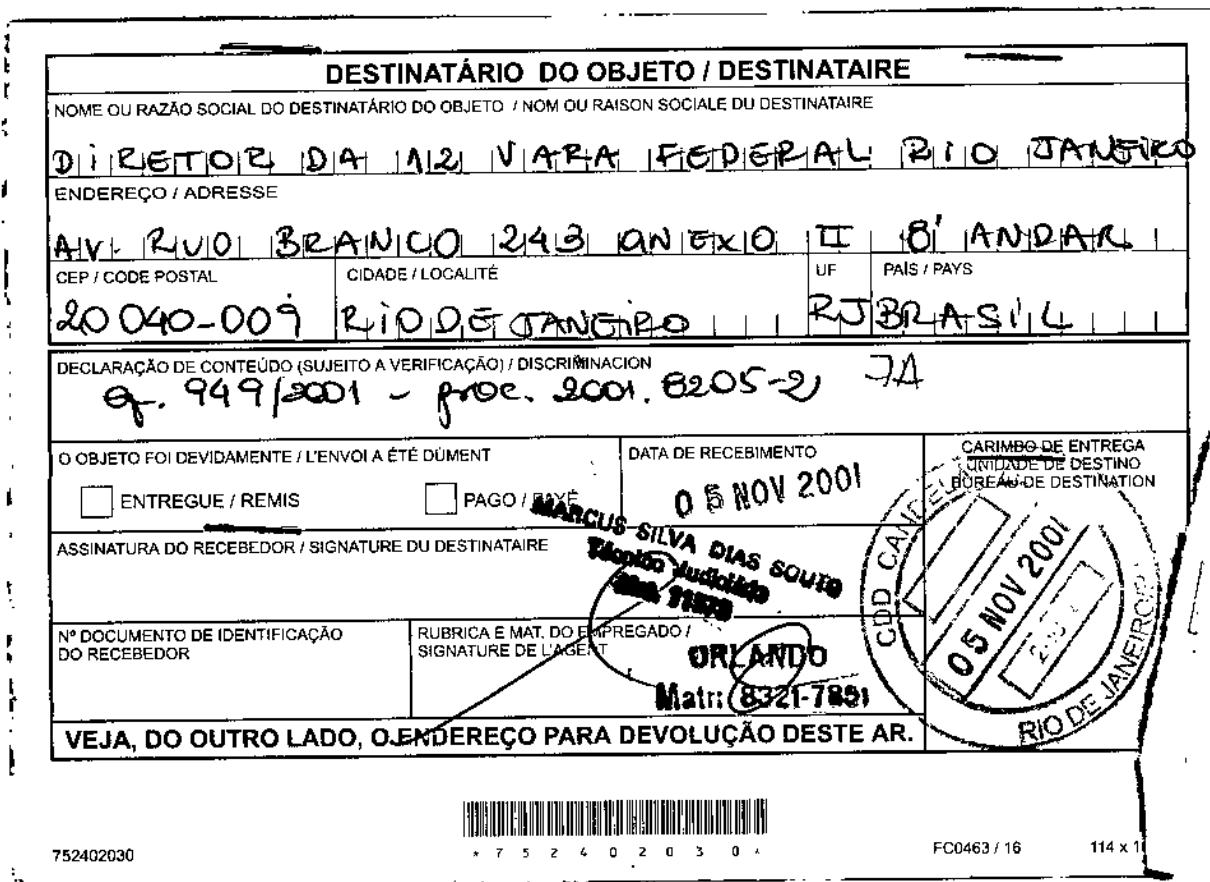 DESTINATÁRIO DO OBJETO / DESTINATAIRE
NOME OU RAZÃO SOCIAL DO DESTINATÁRIO DO OBJETO / NOM OU RAISON SOCIALE DU DESTINATAIRE
DIRETOR DA 12 VARA FEDERAL RIO JANEIRO
ENDEREÇO / ADRESSE
AV. RUO BRANCO 243 ANEXO II 8º ANDAR
CEP / CODE POSTAL CIDADE / LOCALITÉ UF PAÍS / PAYS
20040-009 RIO DE JANEIRO RJ BRASIL
DECLARAÇÃO DE CONTEÚDO (SUJEITO A VERIFICAÇÃO) / DISCRIMINACION
949/2001 - proc. 2001.8205-2 JA
O OBJETO FOI DEVIDAMENTE / L'ENVOI A ÉTÉ DÛMENT
ENTREGUE / REMIS PAGO / PAYÉ
DATA DE RECEBIMENTO
05 NOV 2001
CARIMBO DE ENTREGA
UNIDADE DE DESTINO
BUREAU DE DESTINATION
ASSINATURA DO RECEBEDOR / SIGNATURE DU DESTINATAIRE
MARCUS SILVA DIAS SOUTO
Técnico Judiciário
CDD
05 NOV 2001
RIO DE JANEIRO
Nº DOCUMENTO DE IDENTIFICAÇÃO
DO RECEBEDOR
RUBRICA E MAT. DO EMPREGADO /
SIGNATURE DE L'AGENT
ORLANDO
Matr: 8321-7851
VEJA, DO OUTRO LADO, O ENDEREÇO PARA DEVOLUÇÃO DESTE AR.
*752402030*
752402030 FC0463 / 16 114 x 1